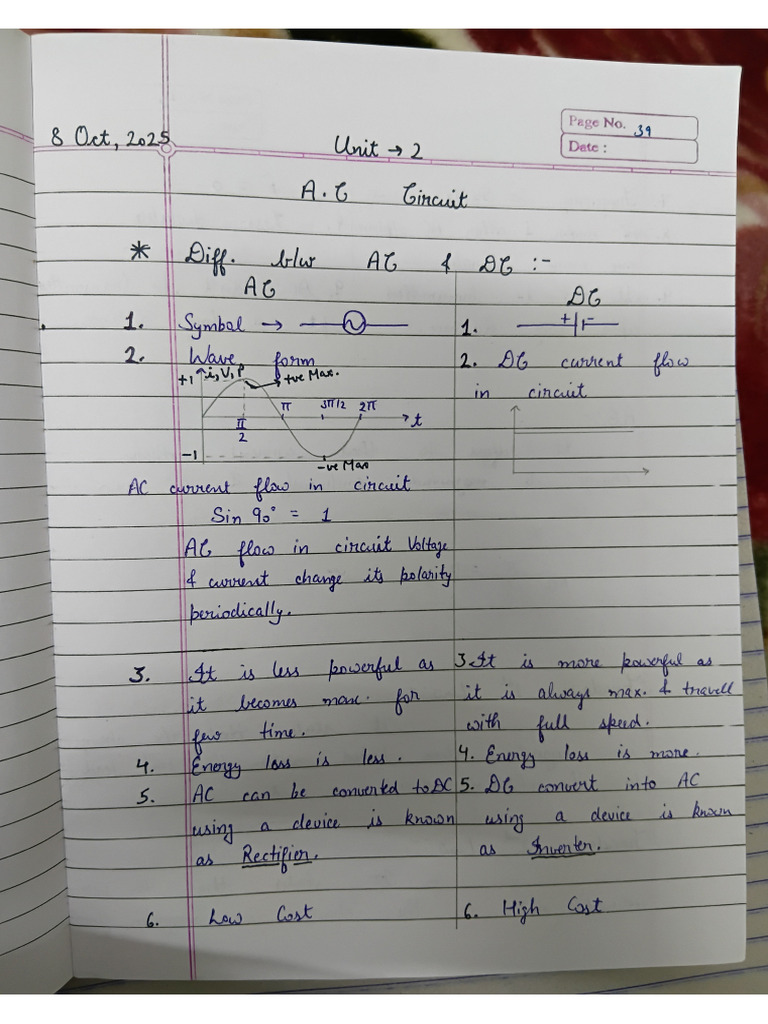 8 Oct, 2025
Page No. 39
Date :
Unit → 2
A.C Circuit
* Diff. b/w AC & DC :-
AC
DC
1. Symbol →
1. + -
2. Wave form
2. DC current flow
in circuit
+1 i,V,P
+ve Max.
π/2 π 3π/2 2π t
-1
-ve Max
AC current flow in circuit
Sin 90° = 1
AC flow in circuit Voltage
& current change its polarity
periodically.
3. It is less powerful as
it becomes max. for
few time.
3. It is more powerful as
it is always max. & travell
with full speed.
4. Energy loss is less.
4. Energy loss is more.
5. AC can be converted to DC
using a device is known
as Rectifier.
5. DC convert into AC
using a device is known
as Inverter.
6. Low Cost
6. High Cost